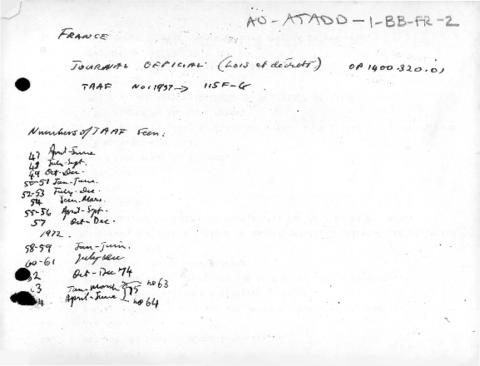 AU-ATADD-1-BB-FR-2
FRANCE
JOURNAL OFFICIAL (Lois et décrets) OP1400.320.01
TAAF No 1 1957 → 115F-G
Numbers of TAAF Seen:
47 April-June
48 July-Sept.
49 Oct-Dec.
50-51 Jan-June.
52-53 July-Dec.
54 Mars.
55-56 April-Sept.
57 Oct-Dec.
1972.
58-59 Jan-Juin.
60-61 July-Dec
2 Oct-Dec '74
3 Jan-March 75 no 63
4 April-June no 64